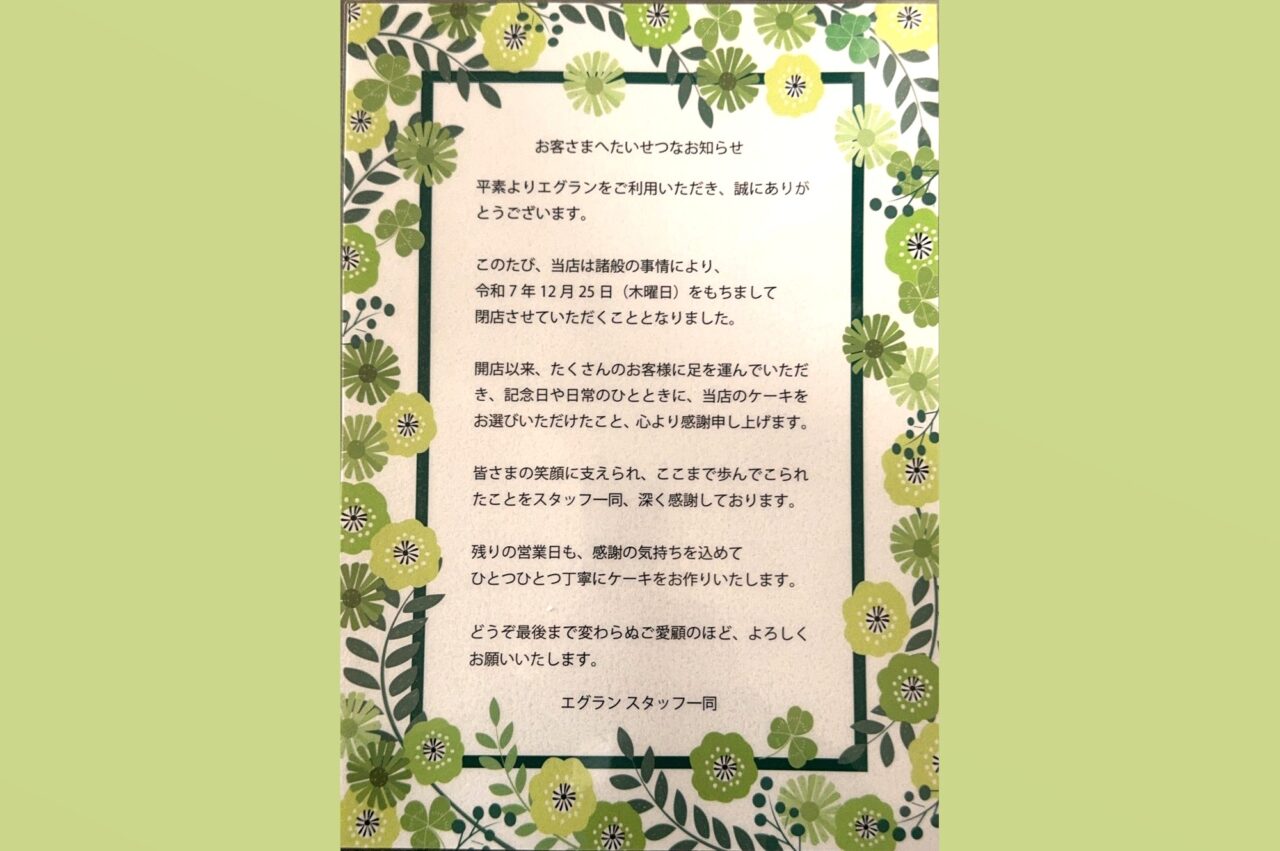 お客さまへたいせつなお知らせ
平素よりエグランをご利用いただき、誠にありが
とうございます。
このたび、当店は諸般の事情により、
令和7年12月25日（木曜日）をもちまして
閉店させていただくこととなりました。
開店以来、たくさんのお客様に足を運んでいただ
き、記念日や日常のひとときに、当店のケーキを
お選びいただけたこと、心より感謝申し上げます。
皆さまの笑顔に支えられ、ここまで歩んでこられ
たことをスタッフ一同、深く感謝しております。
残りの営業日も、感謝の気持ちを込めて
ひとつひとつ丁寧にケーキをお作りいたします。
どうぞ最後まで変わらぬご愛顧のほど、よろしく
お願いいたします。
エグラン スタッフ一同